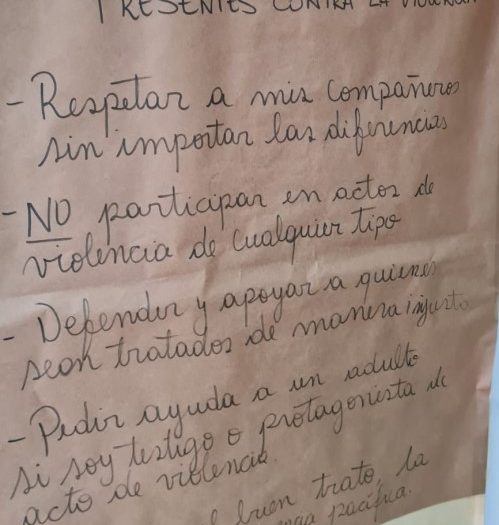 PRESENTES CONTRA LA VIOLENCIA
- Respetar a mis compañeros
sin importar las diferencias
- NO participar en actos de
violencia de cualquier tipo
- Defender y apoyar a quienes
sean tratados de manera injusta
- Pedir ayuda a un adulto
si soy testigo o protagonista de
acto de violencia.
buen trato, la
pacífica.